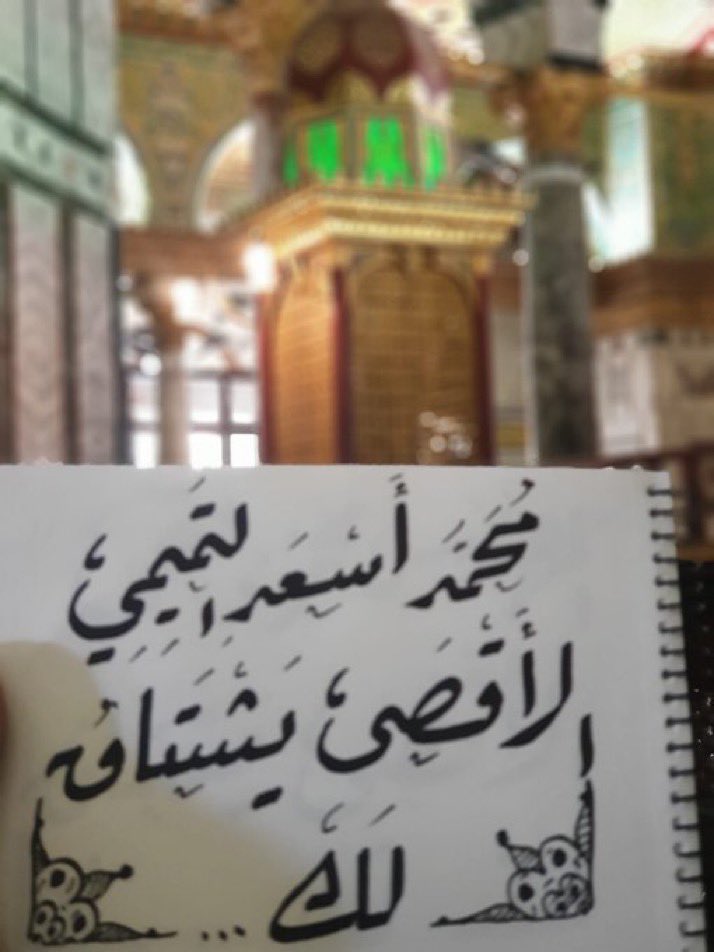 مُحَمَّد أَسْعَد التَّمِيمِي
الأَقْصَى يَشْتَاقُ
لَكَ...